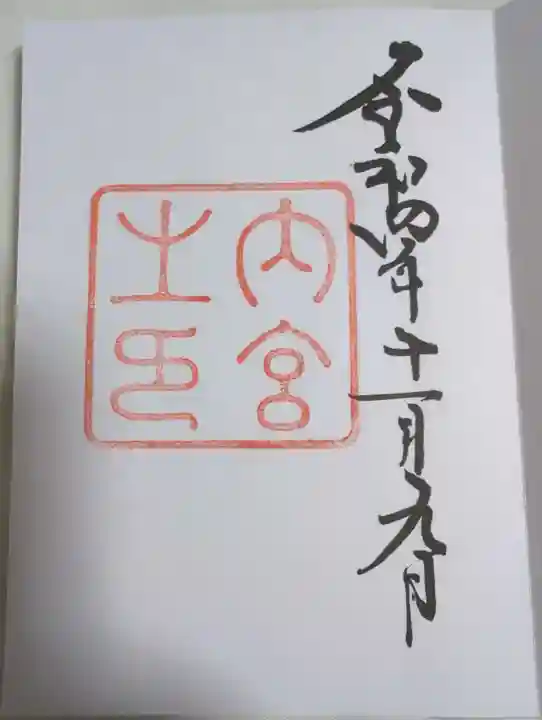 令和四年十一月九日
内宮
之印